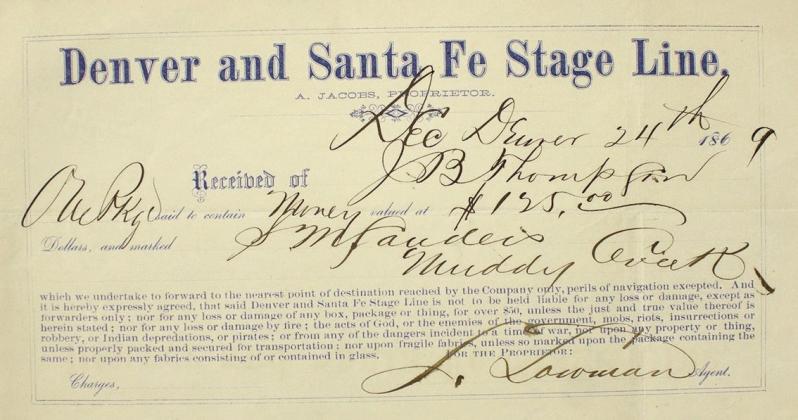 Denver and Santa Fe Stage Line.
A. JACOBS, PROPRIETOR.
Dec Denver 24th 1869
Received of J B Thompson
One Pkge said to contain Money valued at $125.00
Dollars, and marked S M
Muddy Creek
which we undertake to forward to the nearest point of destination reached by the Company only, perils of navigation excepted. And
it is hereby expressly agreed, that said Denver and Santa Fe Stage Line is not to be held liable for any loss or damage, except as
forwarders only; nor for any loss or damage of any box, package or thing, for over $50, unless the just and true value thereof is
herein stated; nor for any loss or damage by fire; the acts of God, or the enemies of the government, mobs, riots, insurrections or
robbery, or Indian depredations, or pirates; or from any of the dangers incident to a time of war, nor upon any property or thing,
unless properly packed and secured for transportation; nor upon fragile fabrics, unless so marked upon the package containing the
same; nor upon any fabrics consisting of or contained in glass.
FOR THE PROPRIETOR:
Charges, J. Lowman Agent.